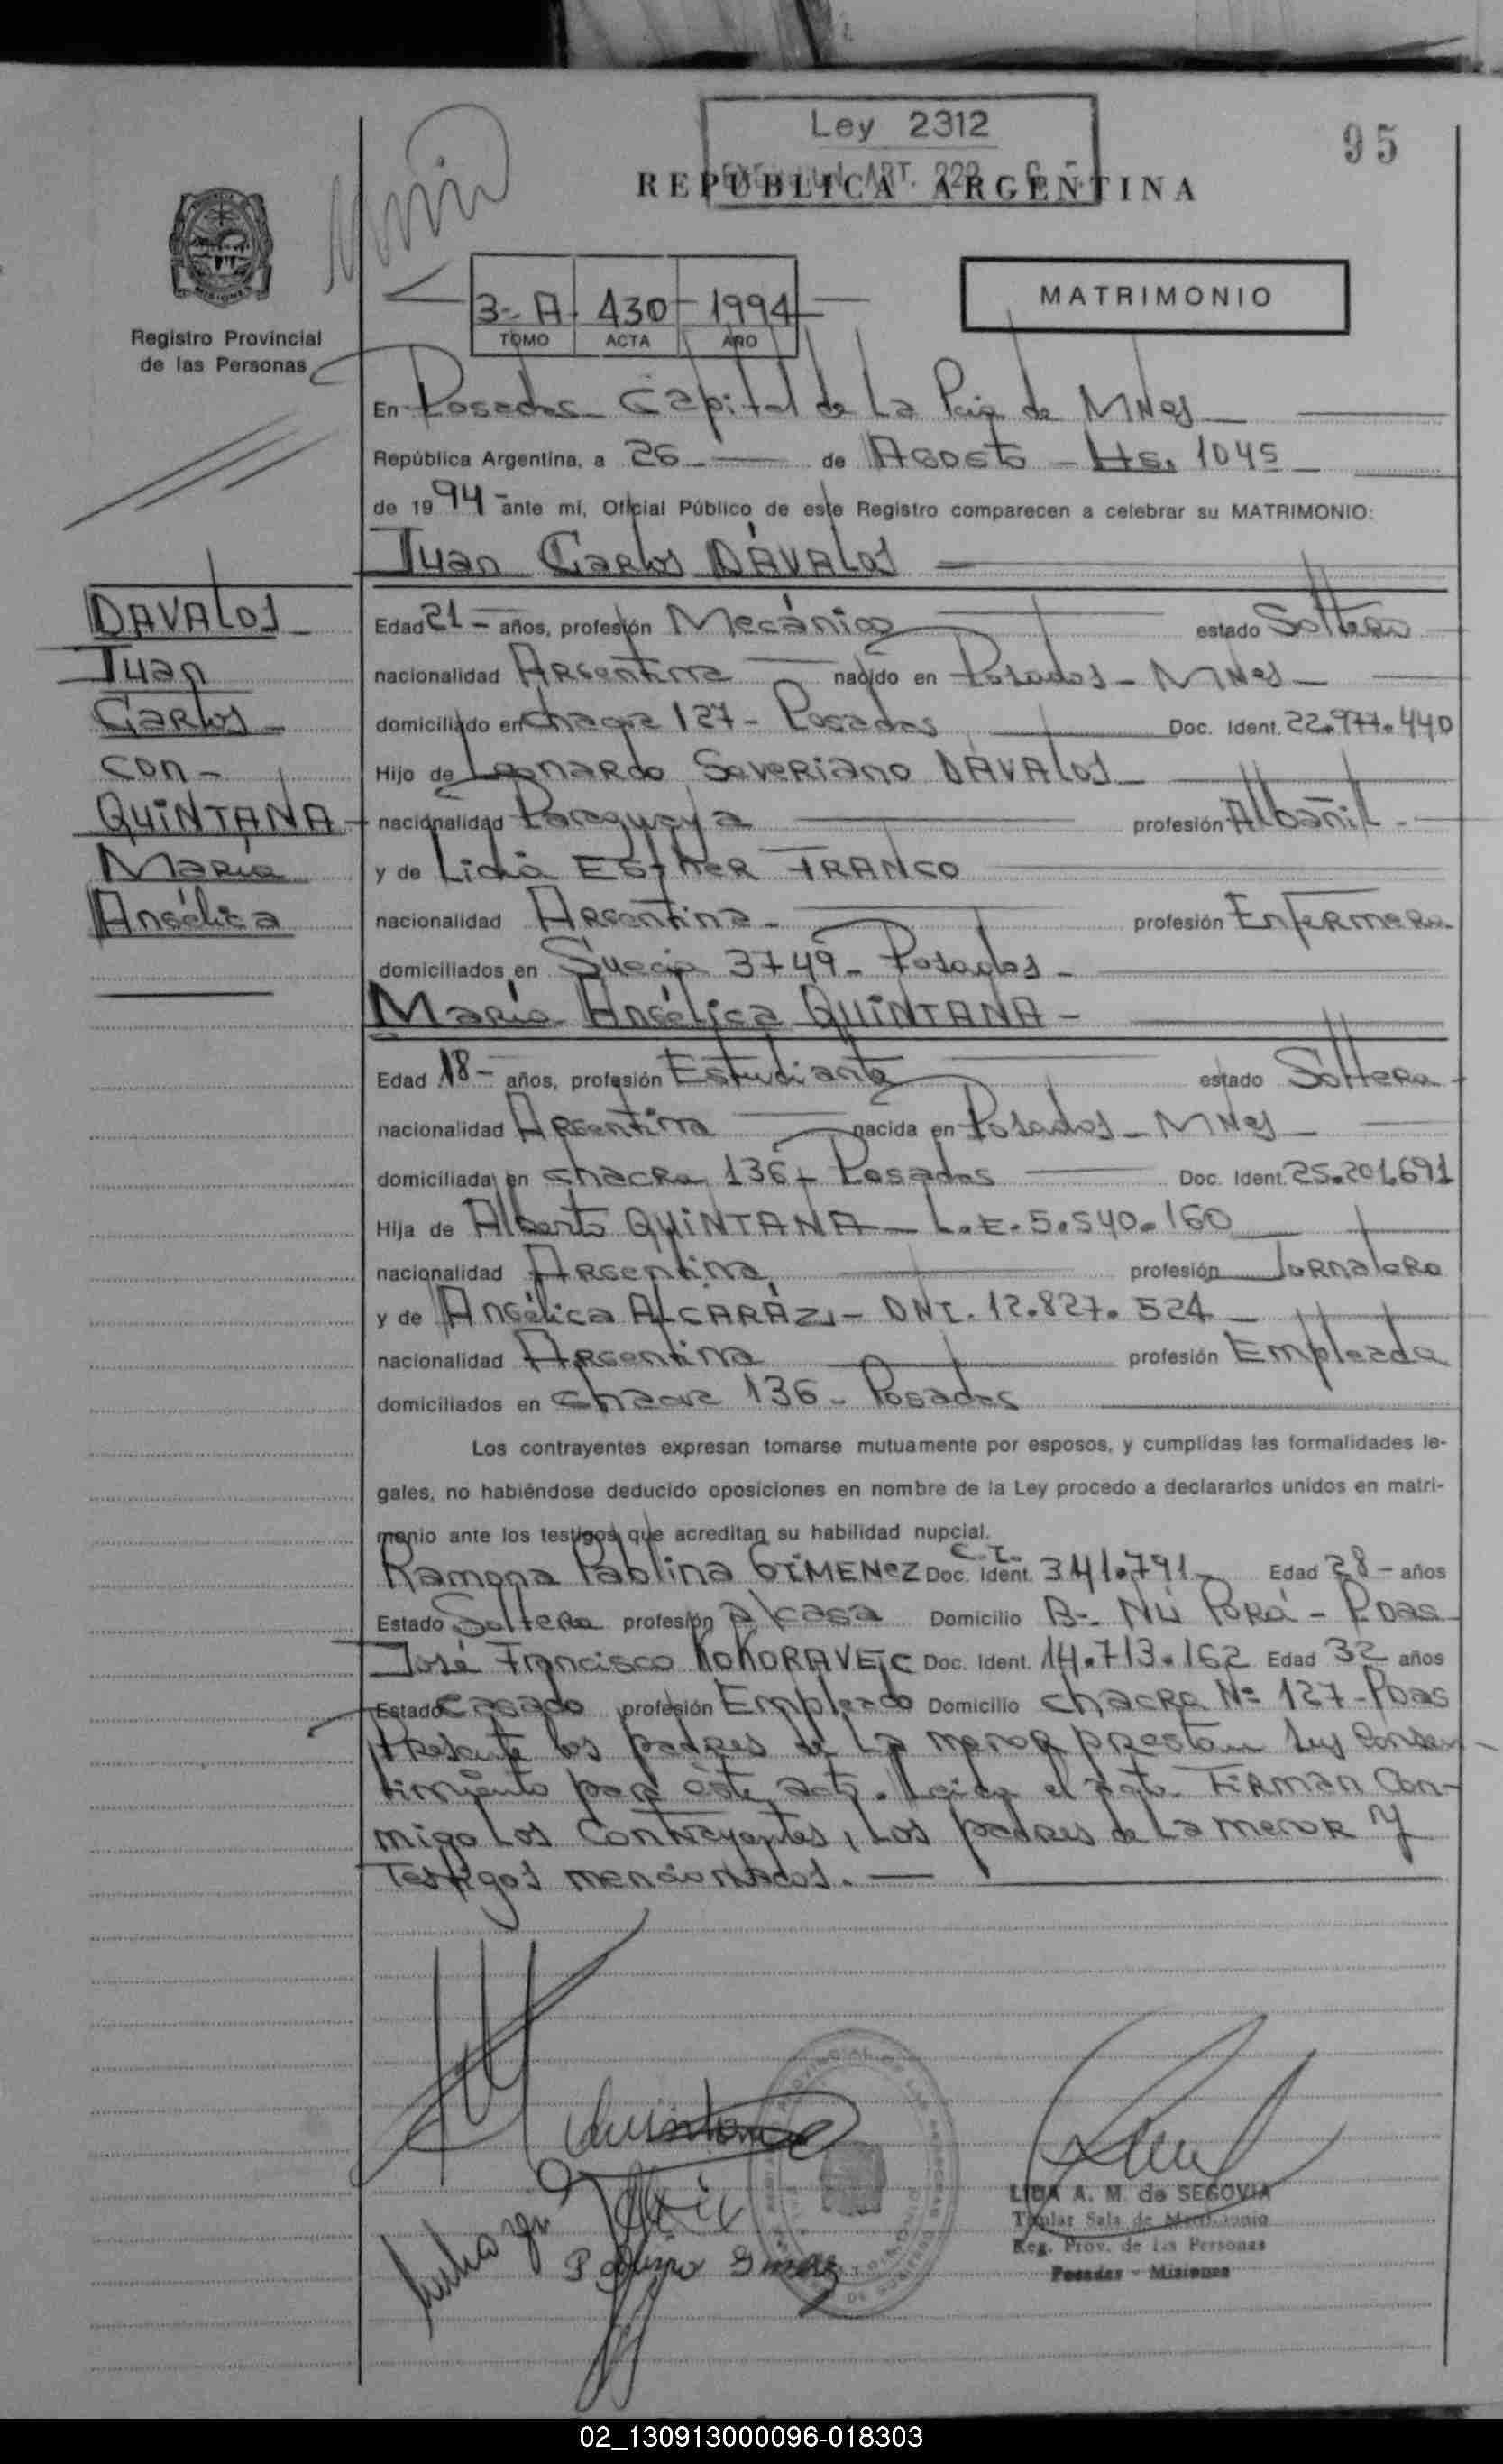 Ley 2312
95
ART. 222
REPUBLICA ARGENTINA
MISIONES
Registro Provincial
de las Personas
3-A 430 1994
TOMO ACTA AÑO
MATRIMONIO
En Posadas Capital de La Pcia de MNes
República Argentina, a 26 de Agosto - Hs. 1045
de 1994 ante mí, Oficial Público de este Registro comparecen a celebrar su MATRIMONIO:
Juan Carlos DÁVALOS
DAVALOS
Juan
Carlos
con -
QUINTANA
María
Angélica
Edad 21 - años, profesión Mecánico estado Soltero
nacionalidad Argentina nacido en Posadas - MNes -
domiciliado en chacra 127 - Posadas Doc. Ident. 22.977.440
Hijo de Leonardo Severiano DÁVALOS
nacionalidad Paraguaya profesión Albañil -
y de Lidia ESTHER FRANCO
nacionalidad Argentina - profesión Enfermera
domiciliados en Suecia 3749 - Posadas -
María Angélica QUINTANA -
Edad 18 - años, profesión Estudiante estado Soltera
nacionalidad Argentina nacida en Posadas - MNes
domiciliada en chacra 136 - Posadas Doc. Ident. 25.201.691
Hija de Alberto QUINTANA - L.E. 5.540.160
nacionalidad Argentina profesión Jornalero
y de Angélica ALCARÁZ, - DNI. 12.827.524
nacionalidad Argentina profesión Empleada
domiciliados en chacra 136 - Posadas
Los contrayentes expresan tomarse mutuamente por esposos, y cumplidas las formalidades le-
gales, no habiéndose deducido oposiciones en nombre de la Ley procedo a declararlos unidos en matri-
monio ante los testigos que acreditan su habilidad nupcial.
Ramona Pablina GIMENEZ Doc. Ident. C.I. 341.791 - Edad 28 - años
Estado Soltera profesión a/casa Domicilio B- Ñu Porá - Pdas
José Francisco KOKORAVEIC Doc. Ident. 14.713.162 Edad 32 años
Estado casado profesión Empleado Domicilio chacra Nº 127 - Pdas
Presente los padres de La menor prestan sus consen-
timiento para este acto. Leida el acta FIRMAN Con-
migo Los Contrayentes, Los padres de La menor y
Testigos mencionados.
Quintana
LIDA A. M. de SEGOVIA
Titular Sala de Matrimonio
Reg. Prov. de las Personas
Posadas - Misiones
02_130913000096-018303